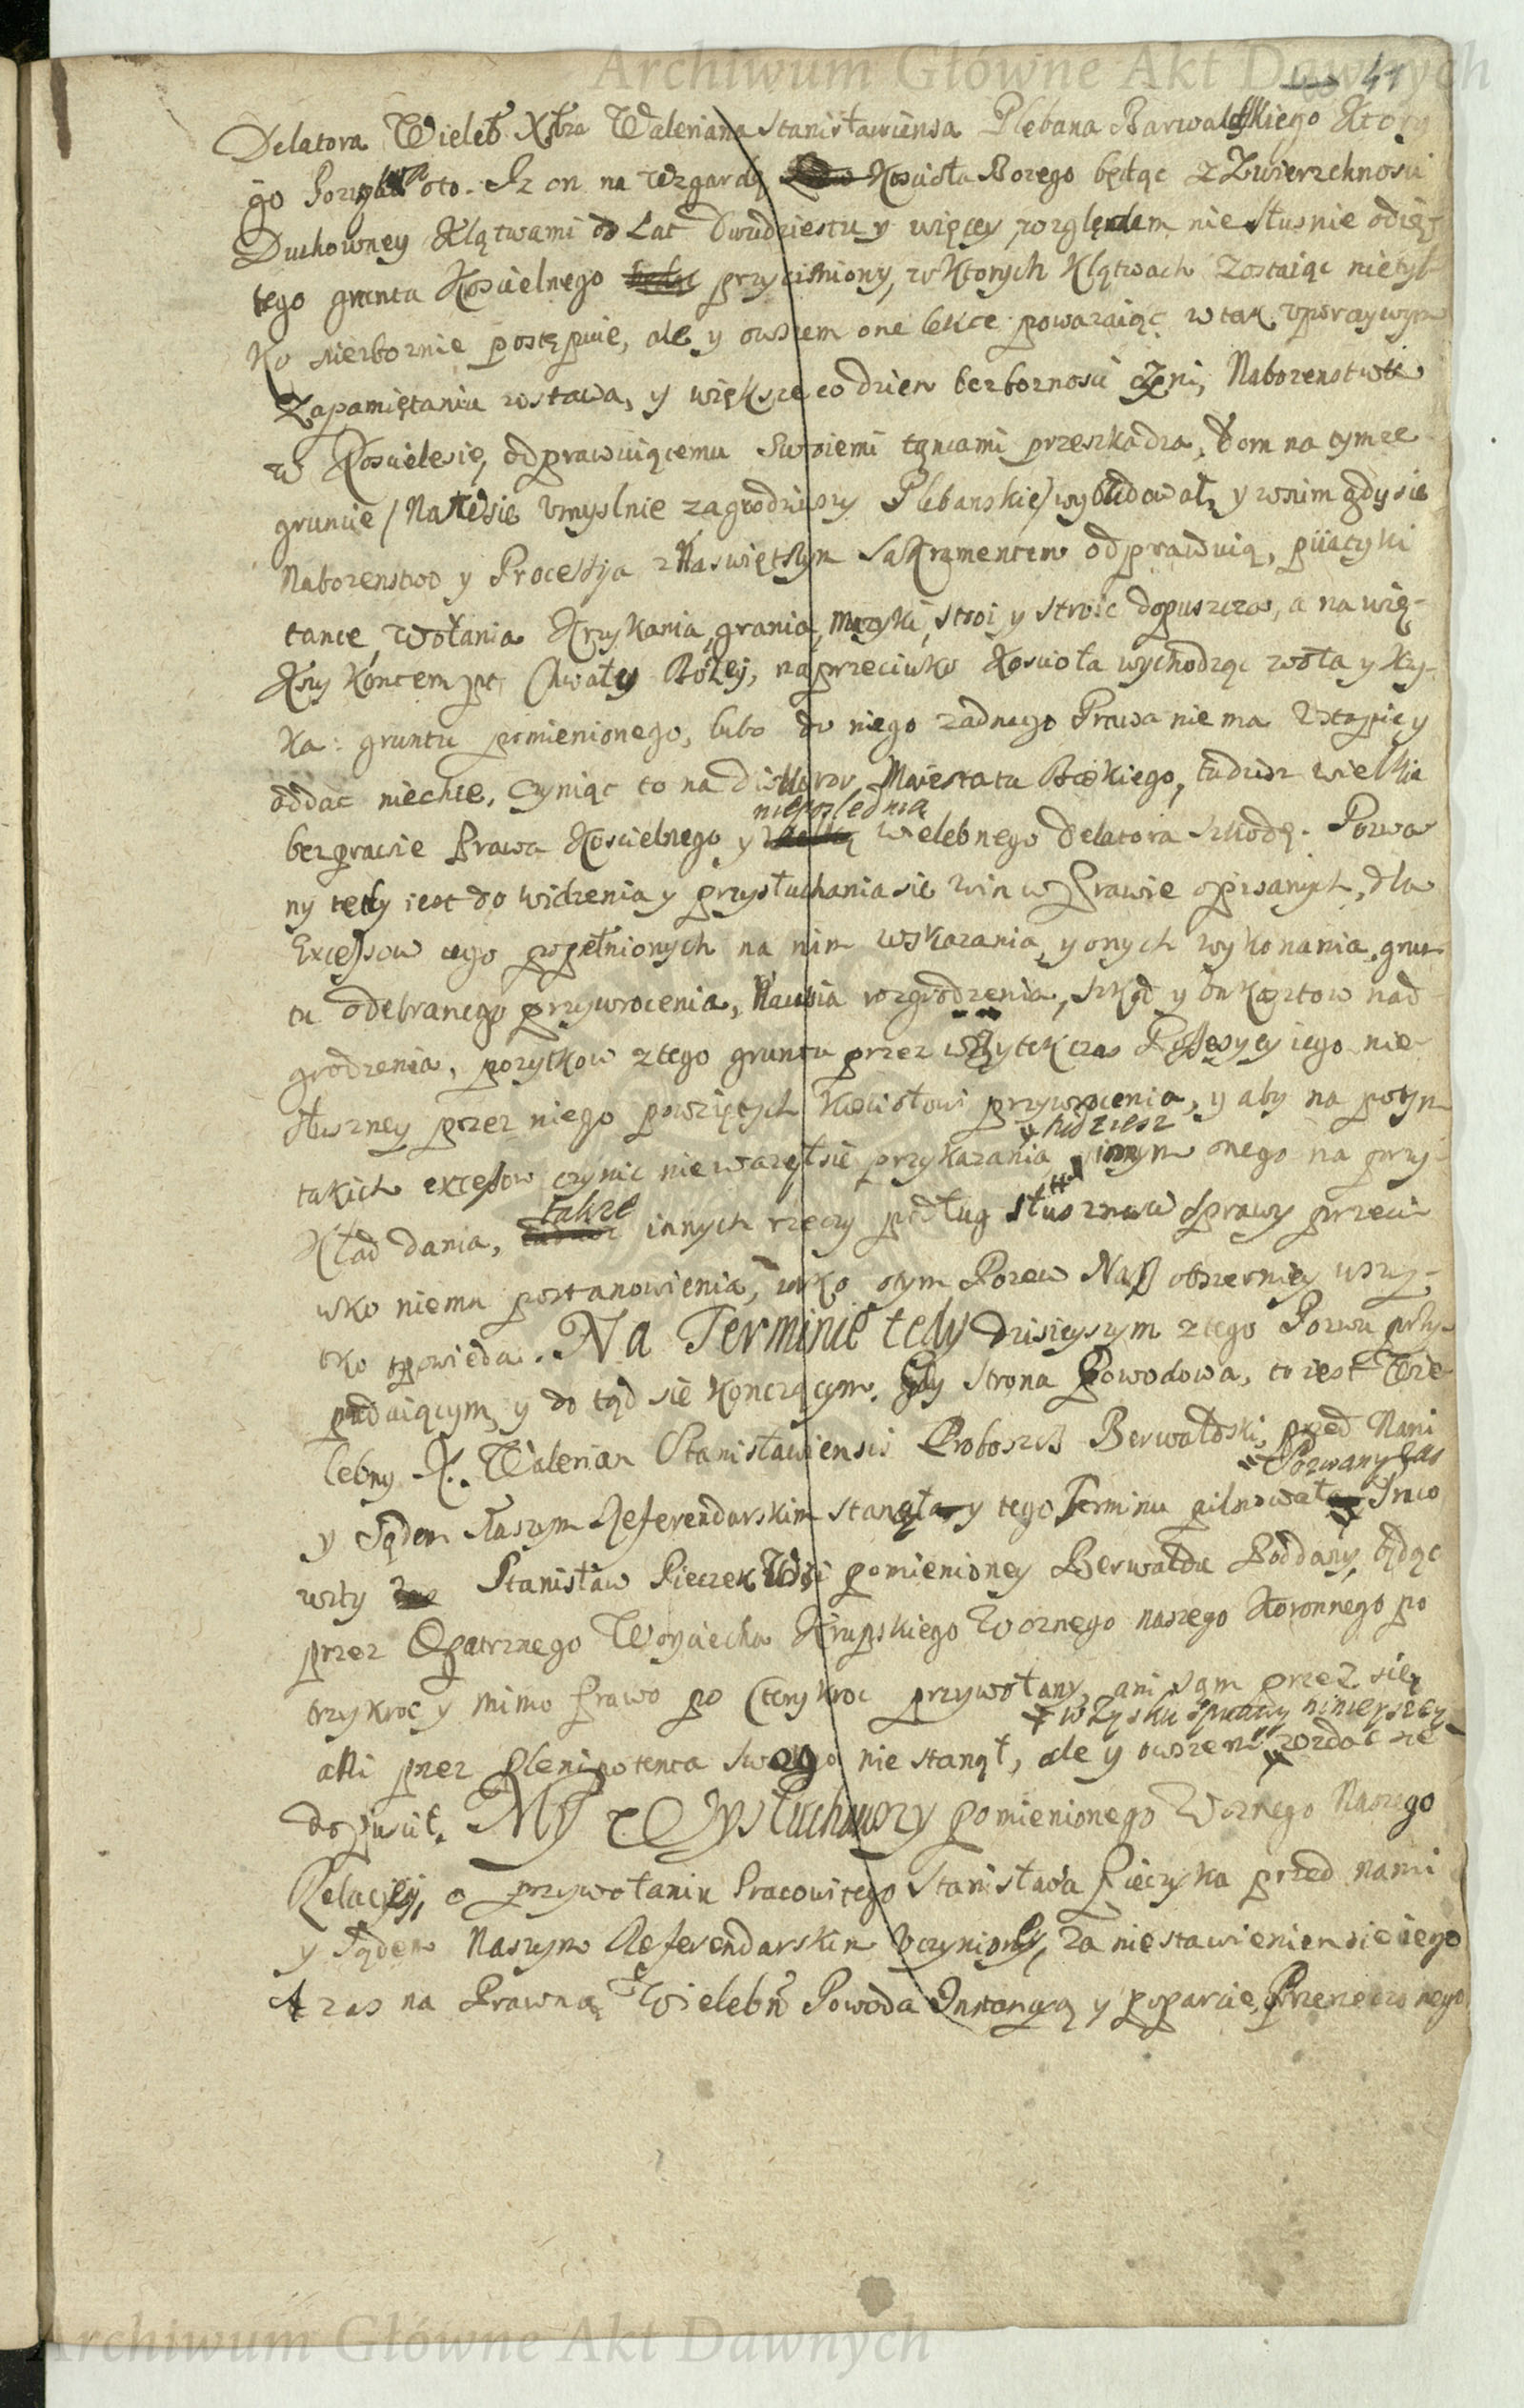 Archiwum Główne Akt Dawnych
41
Delatora Wieleb. Xdza Waleriana Stanisławiensa Plebana Barwaldskiego Ktory
go Pozywa oto. Iz on na wzgardę Koscioła Bozego będąc z Zwierzchnosci
Duchowney Klątwami od Lat Dwudziestu y więcey, względem nie słusnie odięt
tego gruntu Koscielnego przycisniony, w ktorych Klątwach zostaiąc nietyl-
ko niezboznie postępuie, ale y owszem one lekce powazaiąc w tak uporczywym
Zapamiętaniu zostawa, y większe co dzien bezboznosci czyni, Nabozenstwu
w Kosciele się, odprawuiącemu swoiemi tąncami przeszkadza, dom na tymze
gruncie / Nawsie Umyslnie zagrodziwszy Plebanskie / wybudował, y w nim gdy sie
Nabozenstwo y Processyia z Naswiętszym Sakramentem odprawuią, piiatyki
tance, wołania Krzykania, grania, Muzyki, stroi y stroic dopuszcza, a na wię-
kszy Kontempt Chwały Bozey, naprzeciwko Koscioła wychodząc woła y krzy-
ka: gruntu pomienionego, lubo do niego zadnego Prawa nie ma Ustąpic y
oddac niechce, czyniąc to na dishonor Maiestatu Boskiego, tudzisz wielkie
nieposlednią
bezprawie Prawa Koscielnego y Wielebnego Delatora szkodę. Pozwa
ny tedy iest do widzenia y przysłuchania sie win w Prawie opisanych, dla
Excessow iego popełnionych na nim wskazania, y onych wykonania, grun
tu odebranego przywrocenia, Nawsia rozgrodzenia, szkod y onkosztow nad
grodzenia, pozytkow z tego gruntu przez wszytek czas Possesyey iego nie-
słuszney przez niego powziętych Kosciołowi przywrocenia, y aby na potym
takich excessow czynic nie wazył sie przykazania, innym onego na przy-
tudziesz
kład dania, także innych rzeczy podług słusznosci sprawy przeci-
wko niemu postanowienia, iako o tym Pozew Nasz obszerniey wszy-
tko opowieda. Na Terminie tedy dzisieyszym z tego Pozwu przy-
padaiącym, y do tąd sie konczącym. Gdy Strona Powodowa, to iest Wie-
lebny X. Walerian Stanisławiensis Proboszcz Berwałdski, przed Nami
Pozwany zas
y Sądem Naszym Referendarskim staneła y tego Terminu pilnowała Praco
wity Stanisław Pieczek Wsi pomienioney Berwałdu Poddany, będąc
przez Opatrznego Woyciecha Krupskiego Woznego naszego Koronnego po
trzykroc y mimo Prawo po czterykroc przywołany, ani sam przez się
w zysku sprawy ninieyszey
ani przez Plenipotenta swego nie stanął, ale y owszem zdac sie
dopuscił. My Wysłuchawszy pomienionego Woznego Naszego
Relacyey, o przywołaniu Pracowitego Stanisława Pieczyka przed nami
y Sądem Naszym Referendarskim Uczynioney, Za niestawieniem sie iego
A zas na Prawną Wielebn. Powoda Instancyą y poparcie, Przerzeczonego
Archiwum Główne Akt Dawnych